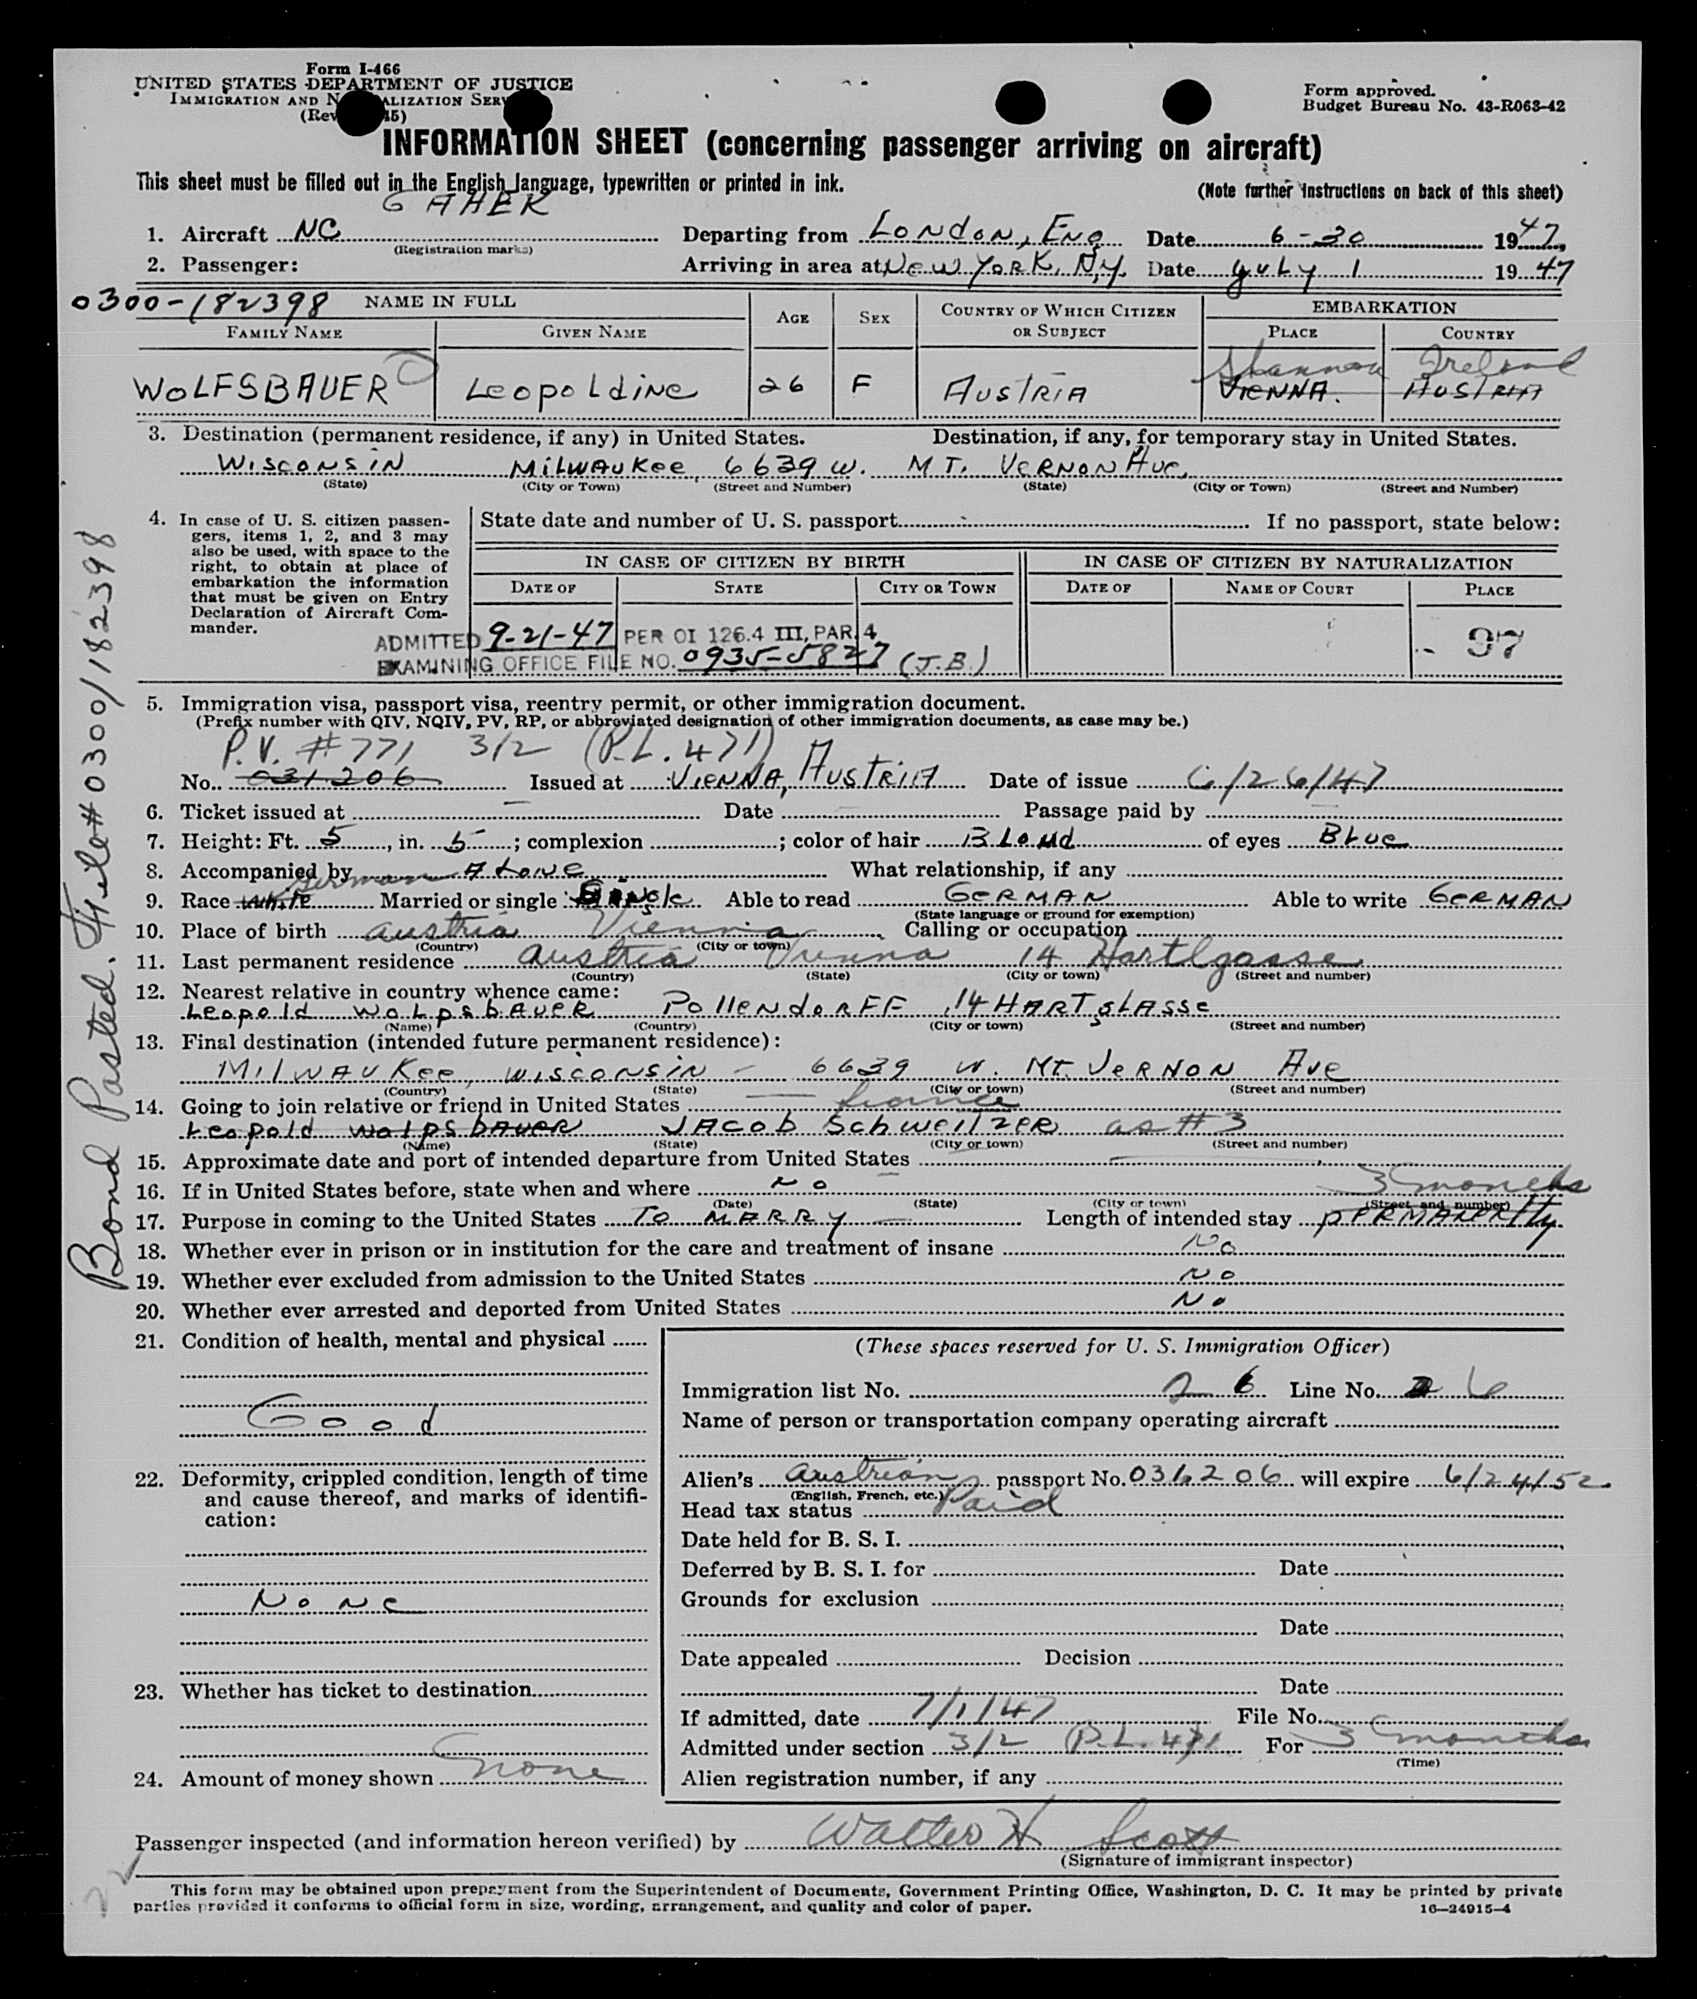 Form I-466
UNITED STATES DEPARTMENT OF JUSTICE
IMMIGRATION AND NATURALIZATION SERVICE
(Rev. 45)
Form approved.
Budget Bureau No. 43-R063-42
INFORMATION SHEET (concerning passenger arriving on aircraft)
This sheet must be filled out in the English language, typewritten or printed in ink.
(Note further instructions on back of this sheet)
GAHER
1. Aircraft NC Departing from LONdON, ENG Date 6-30 1947
(Registration marks)
2. Passenger: Arriving in area at NEW YORK, N.Y. Date July 1 1947
0300-182398 NAME IN FULL AGE SEX COUNTRY OF WHICH CITIZEN OR SUBJECT EMBARKATION
FAMILY NAME GIVEN NAME PLACE COUNTRY
Shannon Ireland
WOLFSBAUER LEOPOLDINE 26 F AUSTRIA VIENNA. AUSTRIA
3. Destination (permanent residence, if any) in United States. Destination, if any, for temporary stay in United States.
WISCONSIN MILWAUKEE, 6639 W. MT. VERNON AVE,
(State) (City or Town) (Street and Number) (State) (City or Town) (Street and Number)
4. In case of U. S. citizen passengers, items 1, 2, and 3 may also be used, with space to the right, to obtain at place of embarkation the information that must be given on Entry Declaration of Aircraft Commander.
State date and number of U. S. passport If no passport, state below:
IN CASE OF CITIZEN BY BIRTH IN CASE OF CITIZEN BY NATURALIZATION
DATE OF STATE CITY OR TOWN DATE OF NAME OF COURT PLACE
97
ADMITTED 9-21-47 PER OI 126.4 III, PAR. 4
EXAMINING OFFICE FILE NO. 0935-5827 (J.B.)
Bond Posted. File# 0300/182398
5. Immigration visa, passport visa, reentry permit, or other immigration document.
(Prefix number with QIV, NQIV, PV, RP, or abbreviated designation of other immigration documents, as case may be.)
P.V. #771 3/2 (P.L. 471)
No. 031206 Issued at VIENNA, AUSTRIA Date of issue 6/26/47
6. Ticket issued at Date Passage paid by
7. Height: Ft. 5, in. 5; complexion ; color of hair BLOND of eyes BLUE
8. Accompanied by ALONE What relationship, if any
German
9. Race White Married or single SINGLE Able to read GERMAN Able to write GERMAN
(State language or ground for exemption)
10. Place of birth Austria Vienna Calling or occupation
(Country) (City or town)
11. Last permanent residence Austria Vienna 14 Hartlgasse
(Country) (State) (City or town) (Street and number)
12. Nearest relative in country whence came:
LEOPOLD WOLPSBAUER POllENdORFF, 14 HARTGLASSE
(Name) (Country) (City or town) (Street and number)
13. Final destination (intended future permanent residence):
MILWAUKEE, WISCONSIN - 6639 W. MT. VERNON AVE
(Country) (State) (City or town) (Street and number)
14. Going to join relative or friend in United States fiance
LEOPOLD WOLPSBAUER JACOB SCHWEITZER as #3
(Name) (State) (City or town) (Street and number)
15. Approximate date and port of intended departure from United States
16. If in United States before, state when and where NO
(Date) (State) (City or town) (Street and number)
3 months
17. Purpose in coming to the United States TO MARRY Length of intended stay PERMANENTLY.
18. Whether ever in prison or in institution for the care and treatment of insane NO
19. Whether ever excluded from admission to the United States NO
20. Whether ever arrested and deported from United States NO
21. Condition of health, mental and physical
Good
22. Deformity, crippled condition, length of time and cause thereof, and marks of identification:
NONE
23. Whether has ticket to destination
24. Amount of money shown none
(These spaces reserved for U. S. Immigration Officer)
Immigration list No. 26 Line No. 6
Name of person or transportation company operating aircraft
Alien's Austrian passport No. 031206 will expire 6/24/52
(English, French, etc.)
Head tax status Paid
Date held for B. S. I.
Deferred by B. S. I. for Date
Grounds for exclusion
Date
Date appealed Decision
Date
If admitted, date 7/1/47 File No.
Admitted under section 3/2 (P.L. 471 For 3 months
(Time)
Alien registration number, if any
Passenger inspected (and information hereon verified) by Walter H Scott
(Signature of immigrant inspector)
This form may be obtained upon prepayment from the Superintendent of Documents, Government Printing Office, Washington, D. C. It may be printed by private
parties provided it conforms to official form in size, wording, arrangement, and quality and color of paper.
16—24915-4